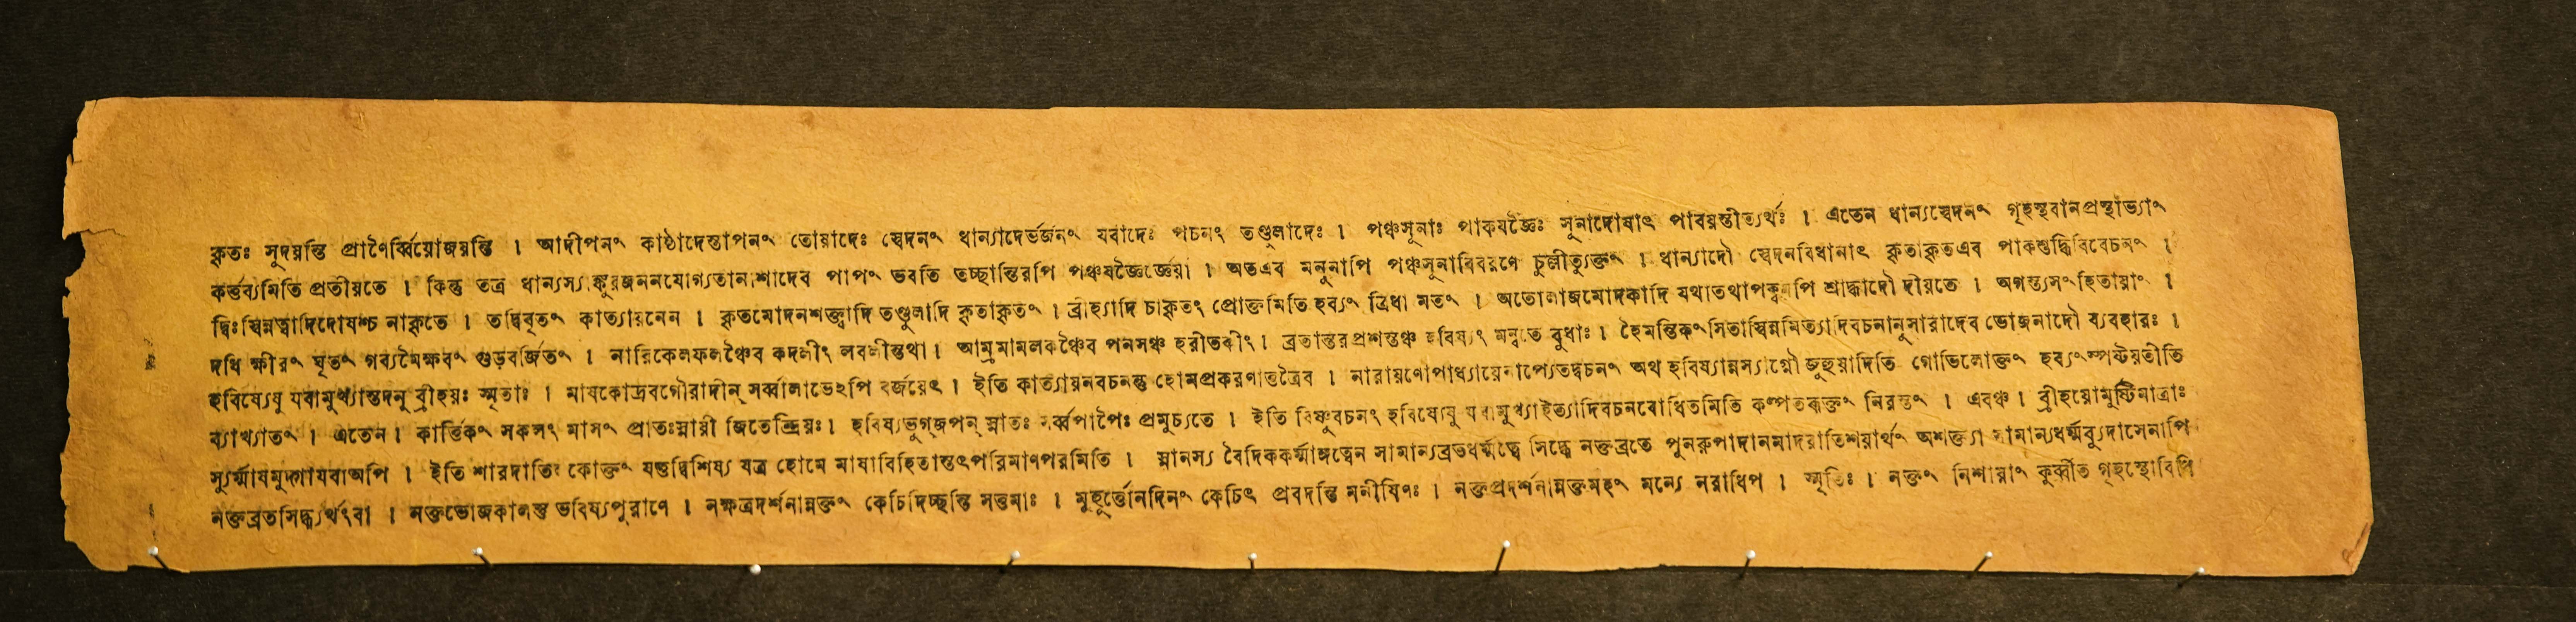 কৃতঃ সূদয়ন্তি প্রাণৈর্ব্বিয়োজয়ন্তি । আদীপনং কাষ্ঠাদেস্তাপনং তোয়াদেঃ স্বেদনং ধান্যাদের্ভর্জনং যবাদেঃ পচনং তণ্ডুলাদেঃ । পঞ্চসূনাঃ পাকযজ্ঞৈঃ সূনাদোষাৎ পাবয়ন্তীত্যর্থঃ । এতেন ধান্যস্বেদনং গৃহস্থবানপ্রস্থাভ্যাং
কর্ত্তব্যমিতি প্রতীয়তে । কিন্তু তত্র ধান্যস্যাঙ্কুরজননযোগ্যতানাশাদেব পাপং ভবতি তচ্ছান্তিরপি পঞ্চযজ্ঞৈর্জ্ঞেয়া । অতএব মনুনাপি পঞ্চসূনাবিবরণে চুল্লীত্যুক্তং । ধান্যাদৌ স্বেদনবিধানাৎ কৃতাকৃতএব পাকশুদ্ধিবিবেচনং ।
দ্বিঃস্বিন্নত্বাদিদোষশ্চ নাকৃতে । তদ্বিবৃতং কাত্যায়নেন । কৃতমোদনশক্ত্বাদি তণ্ডুলাদি কৃতাকৃতং । ব্রীহ্যাদি চাকৃতং প্রোক্তমিতি হব্যং ত্রিধা মতং । অতোলাজমোদকাদি যথাতথাপক্বমপি শ্রাদ্ধাদৌ দীয়তে । অগস্ত্যসংহিতায়াং ।
দধি ক্ষীরং ঘৃতং গব্যমৈক্ষবং গুড়বর্জিতং । নারিকেলফলঞ্চৈব কদলীং লবলীন্তথা । আম্রমামলকঞ্চৈব পনসঞ্চ হরীতকীং । ব্রতান্তরপ্রশস্তঞ্চ হবিষ্যং মন্বতে বুধাঃ । হৈমন্তিকংসিতাস্বিন্নমিত্যাদিবচনানুসারাদেব ভোজনাদৌ ব্যবহারঃ ।
হবিষ্যেষু যবামুখ্যাস্তদনু ব্রীহয়ঃ স্মৃতাঃ । মাষকোদ্রবগৌরাদীন্ সর্ব্বালাভেঽপি বর্জয়েৎ । ইতি কাত্যায়নবচনন্তু হোমপ্রকরণাত্তত্রৈব । নারায়ণোপাধ্যায়েনাপ্যেতদ্বচনং অথ হবিষ্যান্নস্যাগ্নৌ জুহুয়াদিতি গোভিলোক্তং হব্যংস্পষ্টয়তীতি
ব্যাখ্যাতং । এতেন । কার্ত্তিকং সকলং মাসং প্রাতঃস্নায়ী জিতেন্দ্রিয়ঃ । হবিষ্যভুগ্জপন্ স্নাতঃ সর্ব্বপাপৈঃ প্রমুচ্যতে । ইতি বিষ্ণুবচনং হবিষ্যেষু যবামুখ্যাইত্যাদিবচনবোধিতমিতি কল্পতরূক্তং নিরস্তং । এবঞ্চ । ব্রীহয়োমুষ্টিমাত্রাঃ
স্যুর্ম্মাষমুদ্গাযবাঅপি । ইতি শারদাতিঃ কোক্তং যত্তদ্বিশিষ্য যত্র হোমে মাষাবিহিতাস্তৎপরিমাণপরমিতি । স্নানস্য বৈদিককর্ম্মাঙ্গত্বেন সামান্যব্রতধর্ম্মত্বে সিদ্ধে নক্তব্রতে পুনরুপাদানমাদরাতিশয়ার্থং অশক্ত্যা সামান্যধর্ম্মব্যুদাসেনাপি
নক্তব্রতসিদ্ধ্যর্থংবা । নক্তভোজকালস্তু ভবিষ্যপুরাণে । নক্ষত্রদর্শনান্নক্তং কেচিদিচ্ছন্তি সত্তমাঃ । মুহূর্ত্তোনদিনং কেচিৎ প্রবদন্তি মনীষিণঃ । নক্তপ্রদর্শনান্নক্তমহং মন্যে নরাধিপ । স্মৃতিঃ । নক্তং নিশায়াং কুর্ব্বীত গৃহস্থোবিধি